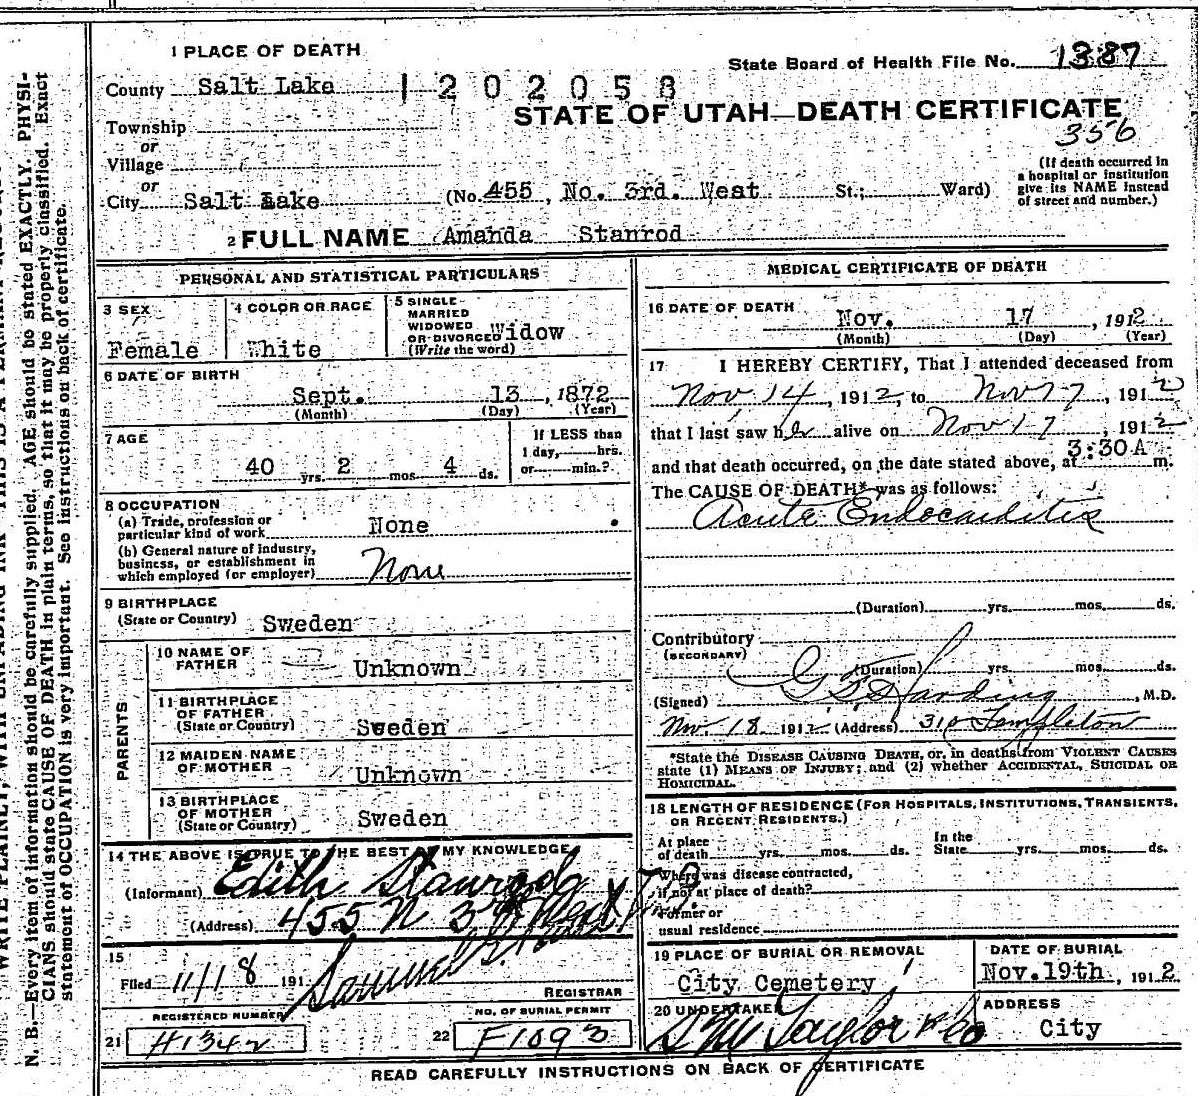 1 PLACE OF DEATH
State Board of Health File No. 1387
County Salt Lake 1202058
STATE OF UTAH—DEATH CERTIFICATE
356
Township
or
Village
or
City Salt Lake (No. 455, No. 3rd. West St.; Ward)
(If death occurred in
a hospital or institution
give its NAME instead
of street and number.)
2 FULL NAME Amanda Stanrod
PERSONAL AND STATISTICAL PARTICULARS
3 SEX
Female
4 COLOR OR RACE
White
5 SINGLE
MARRIED
WIDOWED
OR DIVORCED Widow
(Write the word)
6 DATE OF BIRTH
Sept. 13, 1872
(Month) (Day) (Year)
7 AGE
40 yrs. 2 mos. 4 ds.
If LESS than
1 day, hrs.
or min.?
8 OCCUPATION
(a) Trade, profession or
particular kind of work None
(b) General nature of industry,
business, or establishment in
which employed (or employer) None
9 BIRTHPLACE
(State or Country) Sweden
PARENTS
10 NAME OF
FATHER Unknown
11 BIRTHPLACE
OF FATHER
(State or Country) Sweden
12 MAIDEN NAME
OF MOTHER Unknown
13 BIRTHPLACE
OF MOTHER
(State or Country) Sweden
14 THE ABOVE IS TRUE TO THE BEST OF MY KNOWLEDGE
(Informant) Edith Stanrod
(Address) 455 N 3rd West
15
Filed 11/18 191 Samuel G.
REGISTRAR
REGISTERED NUMBER
21 H1342
NO. OF BURIAL PERMIT
22 F1093
MEDICAL CERTIFICATE OF DEATH
16 DATE OF DEATH
Nov. 17, 1912
(Month) (Day) (Year)
17 I HEREBY CERTIFY, That I attended deceased from
Nov 14, 1912, to Nov 17, 1912
that I last saw her alive on Nov 17, 1912
and that death occurred, on the date stated above, at 3:30 A m.
The CAUSE OF DEATH* was as follows:
Acute Endocarditis
(Duration) yrs. mos. ds.
Contributory
(SECONDARY)
(Duration) yrs. mos. ds.
(Signed) G Harding, M.D.
Nov. 18 1912 (Address) 310 Templeton
*State the DISEASE CAUSING DEATH, or, in deaths from VIOLENT CAUSES
state (1) MEANS OF INJURY; and (2) whether ACCIDENTAL, SUICIDAL OR
HOMICIDAL.
18 LENGTH OF RESIDENCE (FOR HOSPITALS, INSTITUTIONS, TRANSIENTS,
OR RECENT RESIDENTS.)
At place
of death yrs. mos. ds.
In the
State yrs. mos. ds.
Where was disease contracted,
if not at place of death?
Former or
usual residence
19 PLACE OF BURIAL OR REMOVAL
City Cemetery
DATE OF BURIAL
Nov. 19th, 1912
20 UNDERTAKER
S M Taylor & Co
ADDRESS
City
READ CAREFULLY INSTRUCTIONS ON BACK OF CERTIFICATE
N. B.—Every item of information should be carefully supplied. AGE should be stated EXACTLY. PHYSI-
CIANS should state CAUSE OF DEATH in plain terms, so that it may be properly classified. Exact
statement of OCCUPATION is very important. See instructions on back of certificate.